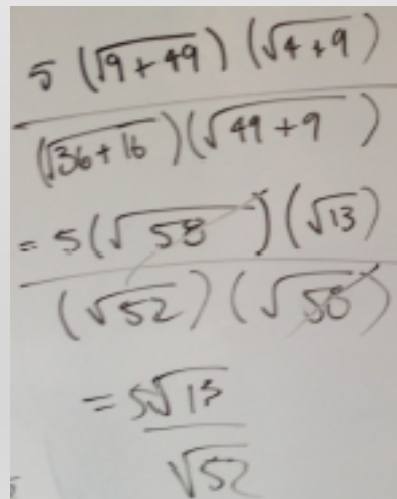 5 (√9+49) (√4+9)
(√36+16)(√49+9)
= 5(√58)(√13)
(√52)(√58)
= 5√13
√52